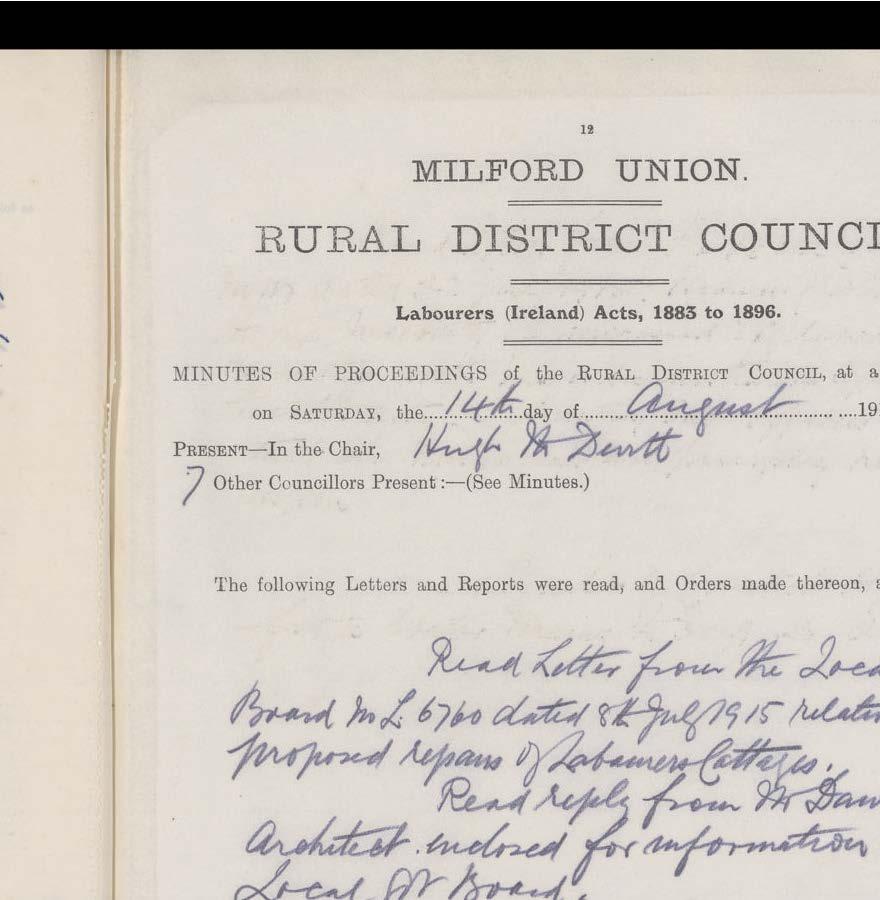 12
MILFORD UNION.
RURAL DISTRICT COUNCI
Labourers (Ireland) Acts, 1883 to 1896.
MINUTES OF PROCEEDINGS of the RURAL DISTRICT COUNCIL, at a
on SATURDAY, the 14th day of August 19
PRESENT—In the Chair, Hugh McDevitt
7 Other Councillors Present :—(See Minutes.)
The following Letters and Reports were read, and Orders made thereon, a
Read Letter from the Loca
Board M L. 6760 dated 8th July 1915 relatin
proposed repairs of Labourers Cottages.
Read reply from Mr Daw
Architect enclosed for information
Local Gvt Board.